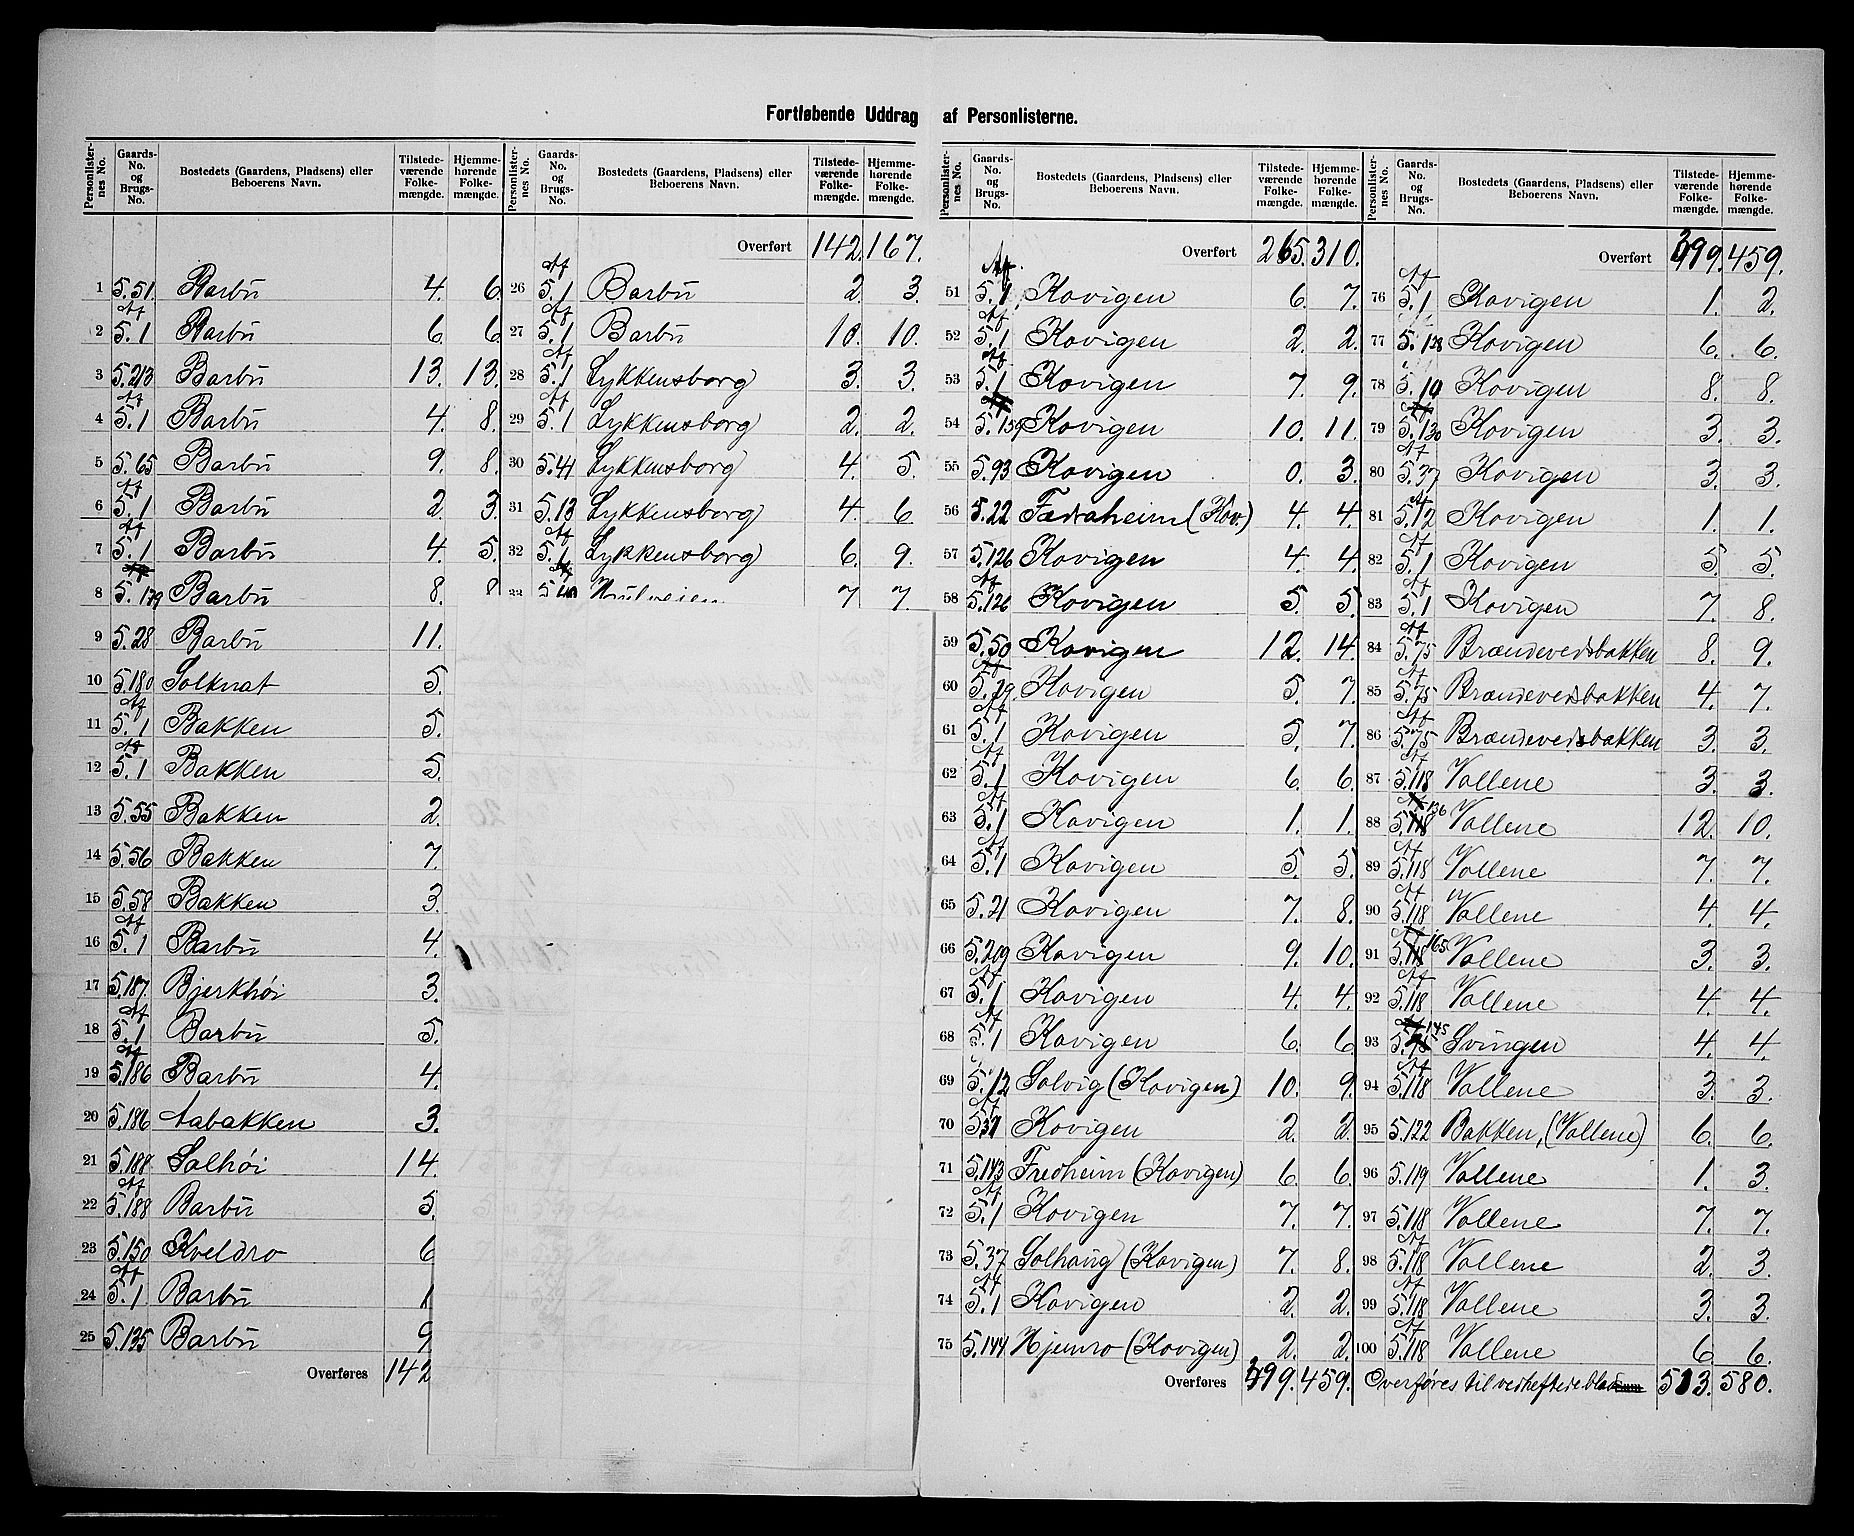 Fortløbende Uddrag af Personlisterne.
Personlisternes No. Gaards-No. og Brugs-No. Bostedets (Gaardens, Pladsens) eller Beboerens Navn. Tilstedeværende Folkemængde. Hjemmehørende Folkemængde.
1 5.51 Barbu 4. 6.
2 Af 5.1 Barbu 6. 6.
3 5.213 Barbu 13. 13.
4 Af 5.1 Barbu 4. 8.
5 5.65 Barbu 9. 8.
6 Af 5.1 Barbu 2. 3.
7 Af 5.1 Barbu 4. 5.
8 5.179 Barbu 8. 8
9 5.28 Barbu 11.
10 5.180 Solknat 5.
11 Af 5.1 Bakken 5.
12 Af 5.1 Bakken 5.
13 5.55 Bakken 2.
14 5.56 Bakken 7.
15 5.58 Bakken 3.
16 Af 5.1 Barbu 4.
17 5.187. Bjerkhøi 3.
18 Af 5.1 Barbu 5.
19 Af 5.186 Barbu 4.
20 5.186 Aabakken 3.
21 5.188 Solhøi 14.
22 Af 5.188 Barbu 5.
23 5.150 Kveldro 6
24 Af 5.1. Barbu 1
25 5.135 Barbu 9
Overføres 142
Personlisternes No. Gaards-No. og Brugs-No. Bostedets (Gaardens, Pladsens) eller Beboerens Navn. Tilstedeværende Folkemængde. Hjemmehørende Folkemængde.
Overført 142. 167.
26 Af 5.1 Barbu 2. 3.
27 Af 5.1 Barbu 10. 10.
28 Af 5.1 Lykkensborg 3. 3.
29 Af 5.1 Lykkensborg 2. 2.
30 5.41 Lykkensborg 4. 5.
31 5.13 Lykkensborg 4. 6
32 Af 5.1 Lykkensborg 6. 9.
33 5.40 7 7.
Personlisternes No. Gaards-No. og Brugs-No. Bostedets (Gaardens, Pladsens) eller Beboerens Navn. Tilstedeværende Folkemængde. Hjemmehørende Folkemængde.
Overført 265. 310.
51 Af 5.1 Kovigen 6. 7.
52 Af 5.1 Kovigen 2. 2.
53 Af 5.1 Kovigen 7. 9.
54 5.159 Kovigen 10. 11.
55 5.93 Kovigen 0. 3.
56 5.22 Fædraheim (Kov.) 4. 4.
57 5.126 Kovigen 4. 4.
58 Af 5.126 Kovigen 5. 5.
59 5.50 Kovigen 12. 14.
60 Af 5.29. Kovigen 5. 7.
61 Af 5.1 Kovigen 5. 7.
62 Af 5.1 Kovigen 6. 6.
63 Af 5.1 Kovigen 1. 1.
64 Af 5.1 Kovigen 5. 5.
65 5.21 Kovigen 7. 8.
66 5.209 Kovigen 9. 10.
67 Af 5.1 Kovigen 4. 4.
68 Af 5.1 Kovigen 6. 6
69 5.12 Solvig (Kovigen) 10. 9.
70 Af 5.37 Kovigen 2. 2.
71 5.143 Fredheim (Kovigen) 6. 6.
72 Af 5.1 Kovigen 7. 7.
73 5.37 Solhaug (Kovigen) 7. 8.
74 Af 5.1 Kovigen 2. 2.
75 5.144 Hjemro (Kovigen) 2. 2.
Overføres 399. 459.
Personlisternes No. Gaards-No. og Brugs-No. Bostedets (Gaardens, Pladsens) eller Beboerens Navn. Tilstedeværende Folkemængde. Hjemmehørende Folkemængde.
Overført 399. 459.
76 Af 5.1 Kovigen 1. 2.
77 5.128 Kovigen 6. 6.
78 5.19 Kovigen 8. 8.
79 5.130 Kovigen 3. 3.
80 Af 5.37 Kovigen 3. 3.
81 Af 5.12 Kovigen 1. 1.
82 Af 5.1 Kovigen 5. 5.
83 Af 5.1 Kovigen 7. 8.
84 Af 5.75 Brændevedsbakken 8. 9.
85 Af 5.75 Brændevedsbakken 4. 7.
86 Af 5.75 Brændevedsbakken 3. 3.
87 Af 5.118 Vollene 3. 3.
88 5.118 136 Vollene 12. 10.
89 Af 5.118 Vollene 7. 7.
90 Af 5.118 Vollene 4. 4.
91 5.118 165 Vollene 3. 3.
92 Af 5.118 Vollene 4. 4.
93 5.75 145 Svingen 4. 4.
94 Af 5.118 Vollene 3. 3.
95 5.122 Bakken, (Vollene) 6. 6.
96 5.119 Vollene 1. 3.
97 5.118 Vollene 7. 7.
98 Af 5.118 Vollene 2. 3.
99 Af 5.118 Vollene 3. 3.
100 Af 5.118 Vollene 6. 6.
Overføres til vedheftede blad 513. 580.